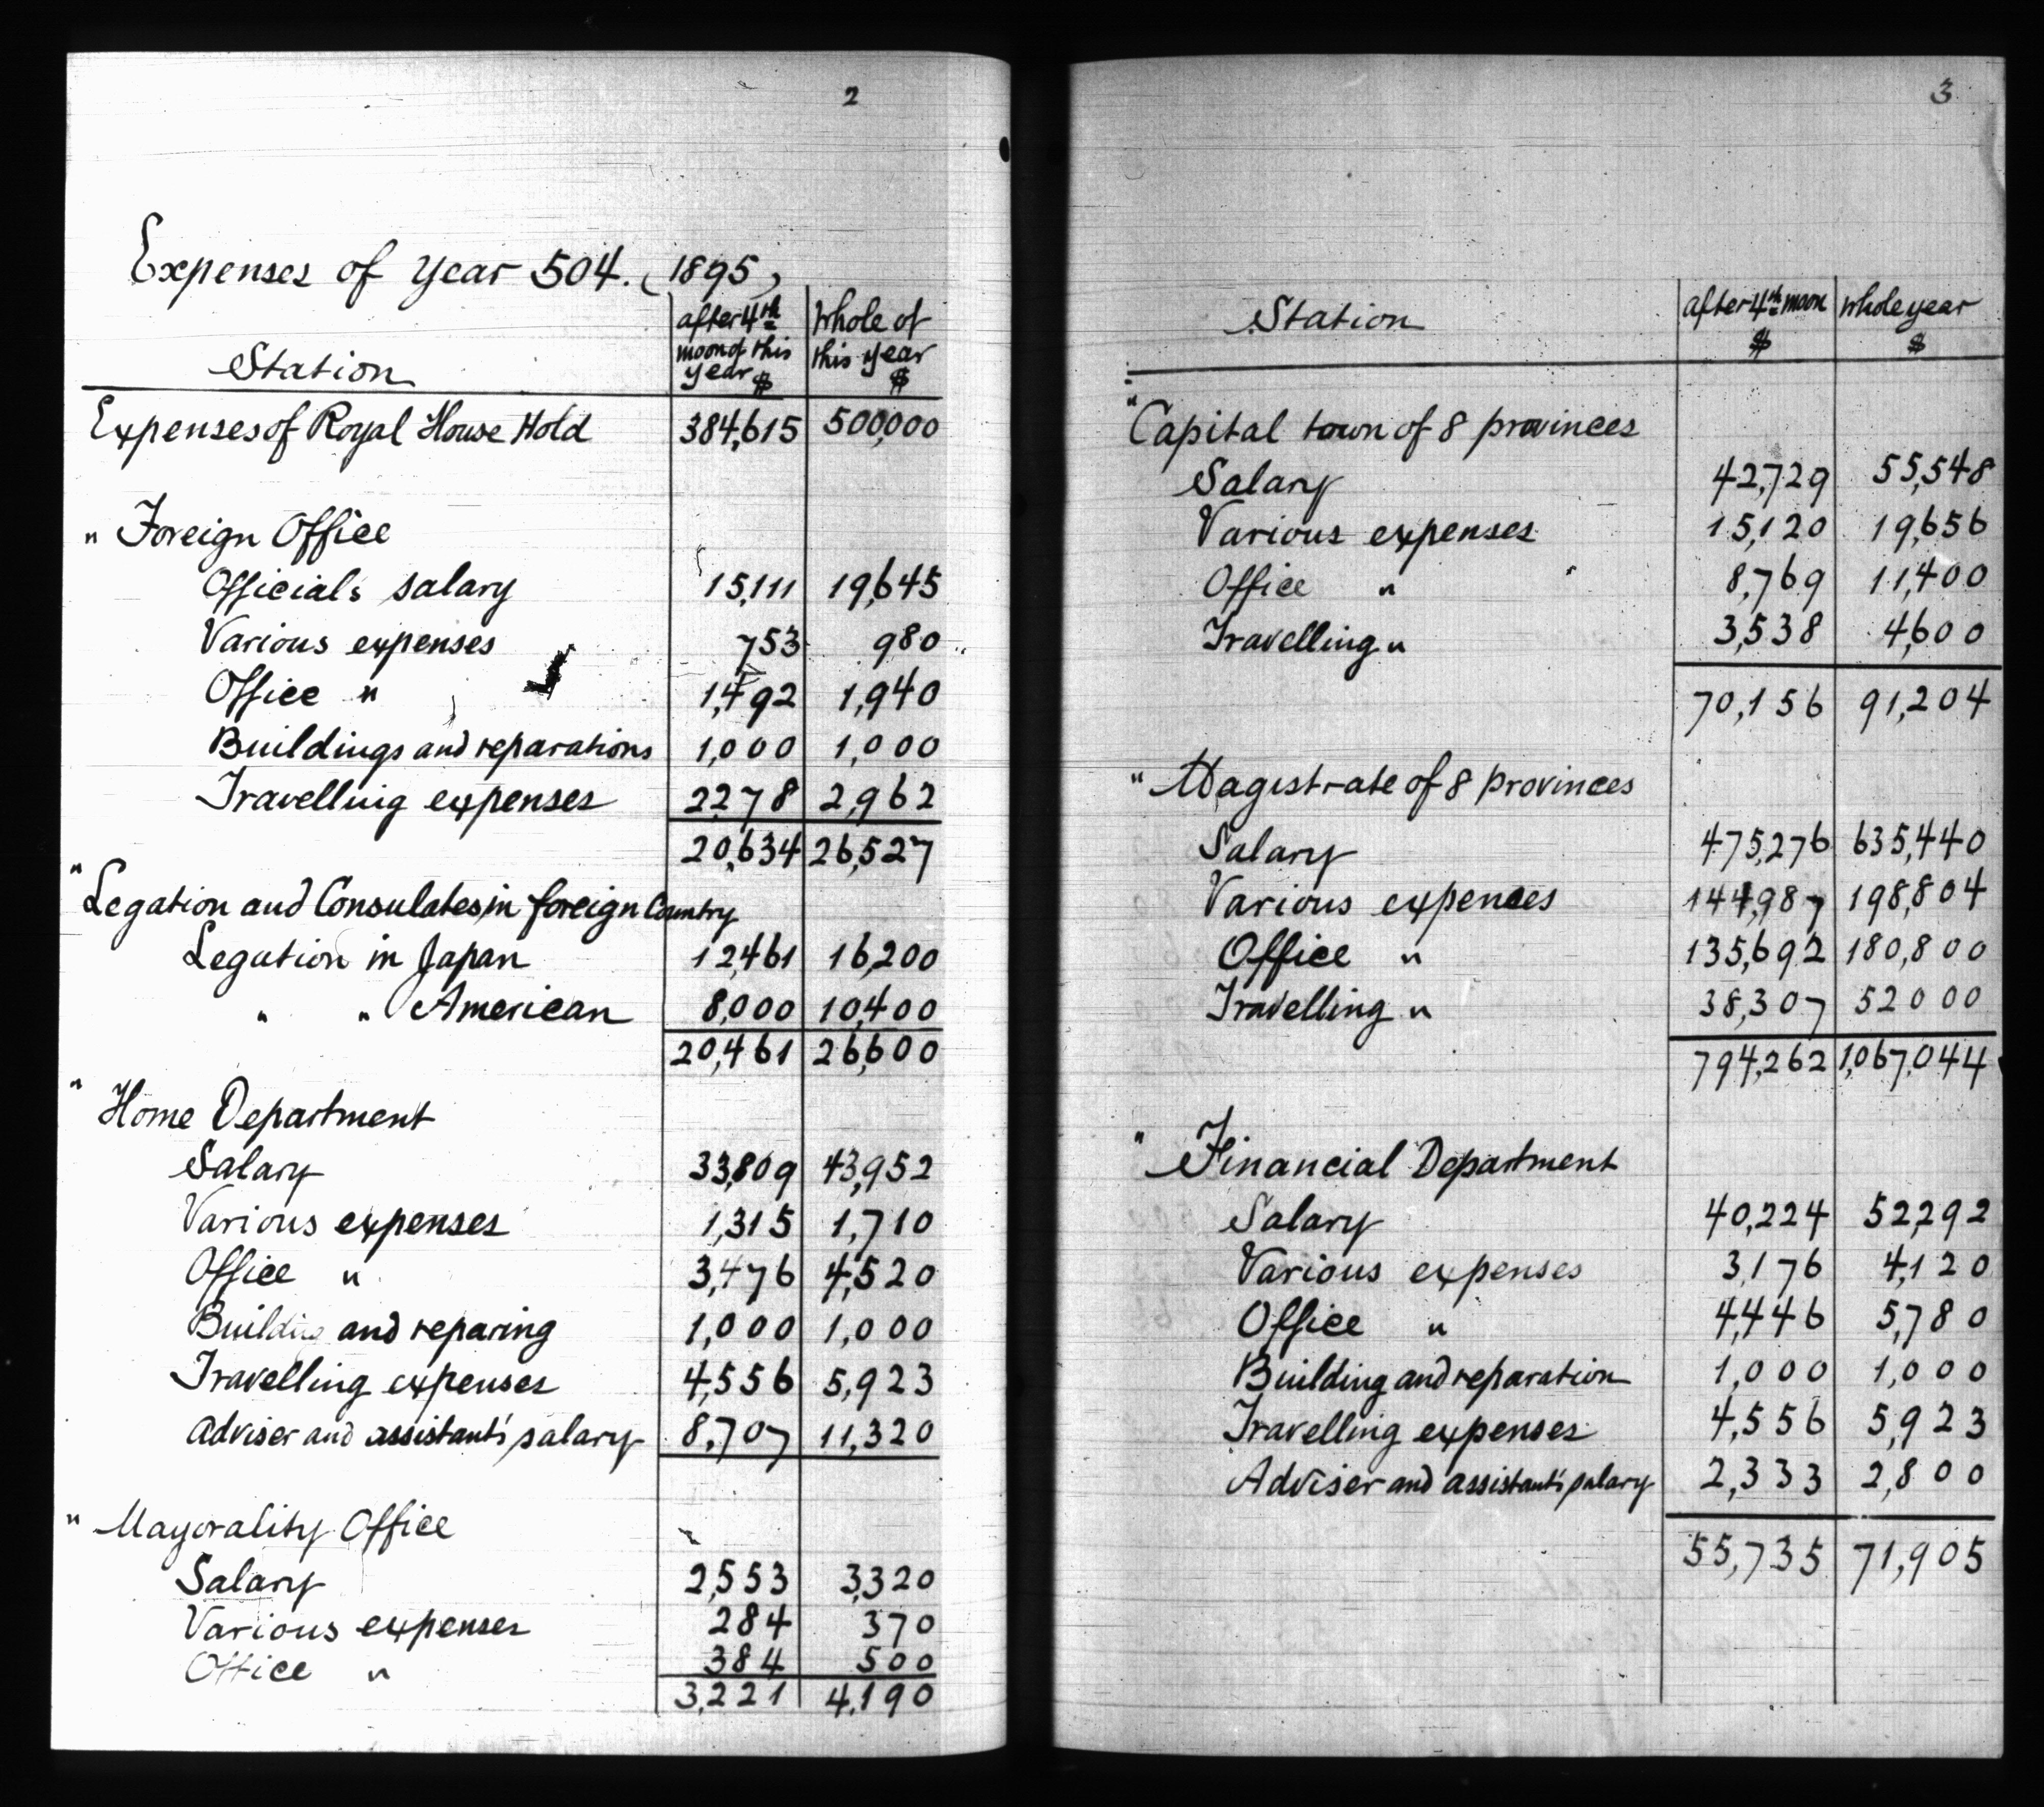 2
Expenses of Year 504. (1895)
Station
after 4th moon of this year $
Whole of this year $
Expenses of Royal House Hold 384,615 500,000
" Foreign Office
Officials salary 15,111 19,645
Various expenses 753 980
Office " 1,492 1,940
Buildings and reparations 1,000 1,000
Travelling expenses 2278 2,962
20,634 26,527
" Legation and Consulates, in foreign Country
Legation in Japan 12,461 16,200
" " American 8,000 10,400
20,461 26,600
" Home Department
Salary 33,809 43,952
Various expenses 1,315 1,710
Office " 3,476 4,520
Building and reparing 1,000 1,000
Travelling expenses 4,556 5,923
Adviser and assistant's salary 8,707 11,320
" Mayorality Office
Salary 2,553 3,320
Various expenses 284 370
Office " 384 500
3,221 4,190
3
Station after 4th moon $ whole year $
" Capital town of 8 provinces
Salary 42,729 55,548
Various expenses 15,120 19,656
Office " 8,769 11,400
Travelling " 3,538 4,600
70,156 91,204
" Magistrate of 8 provinces
Salary 475,276 635,440
Various expences 144,987 198,804
Office " 135,692 180,800
Travelling " 38,307 52000
794,262 1,067,044
" Financial Department
Salary 40,224 52,292
Various expenses 3,176 4,120
Office " 4,446 5,780
Building and reparation 1,000 1,000
Travelling expenses 4,556 5,923
Adviser and assistant's salary 2,333 2,800
55,735 71,905